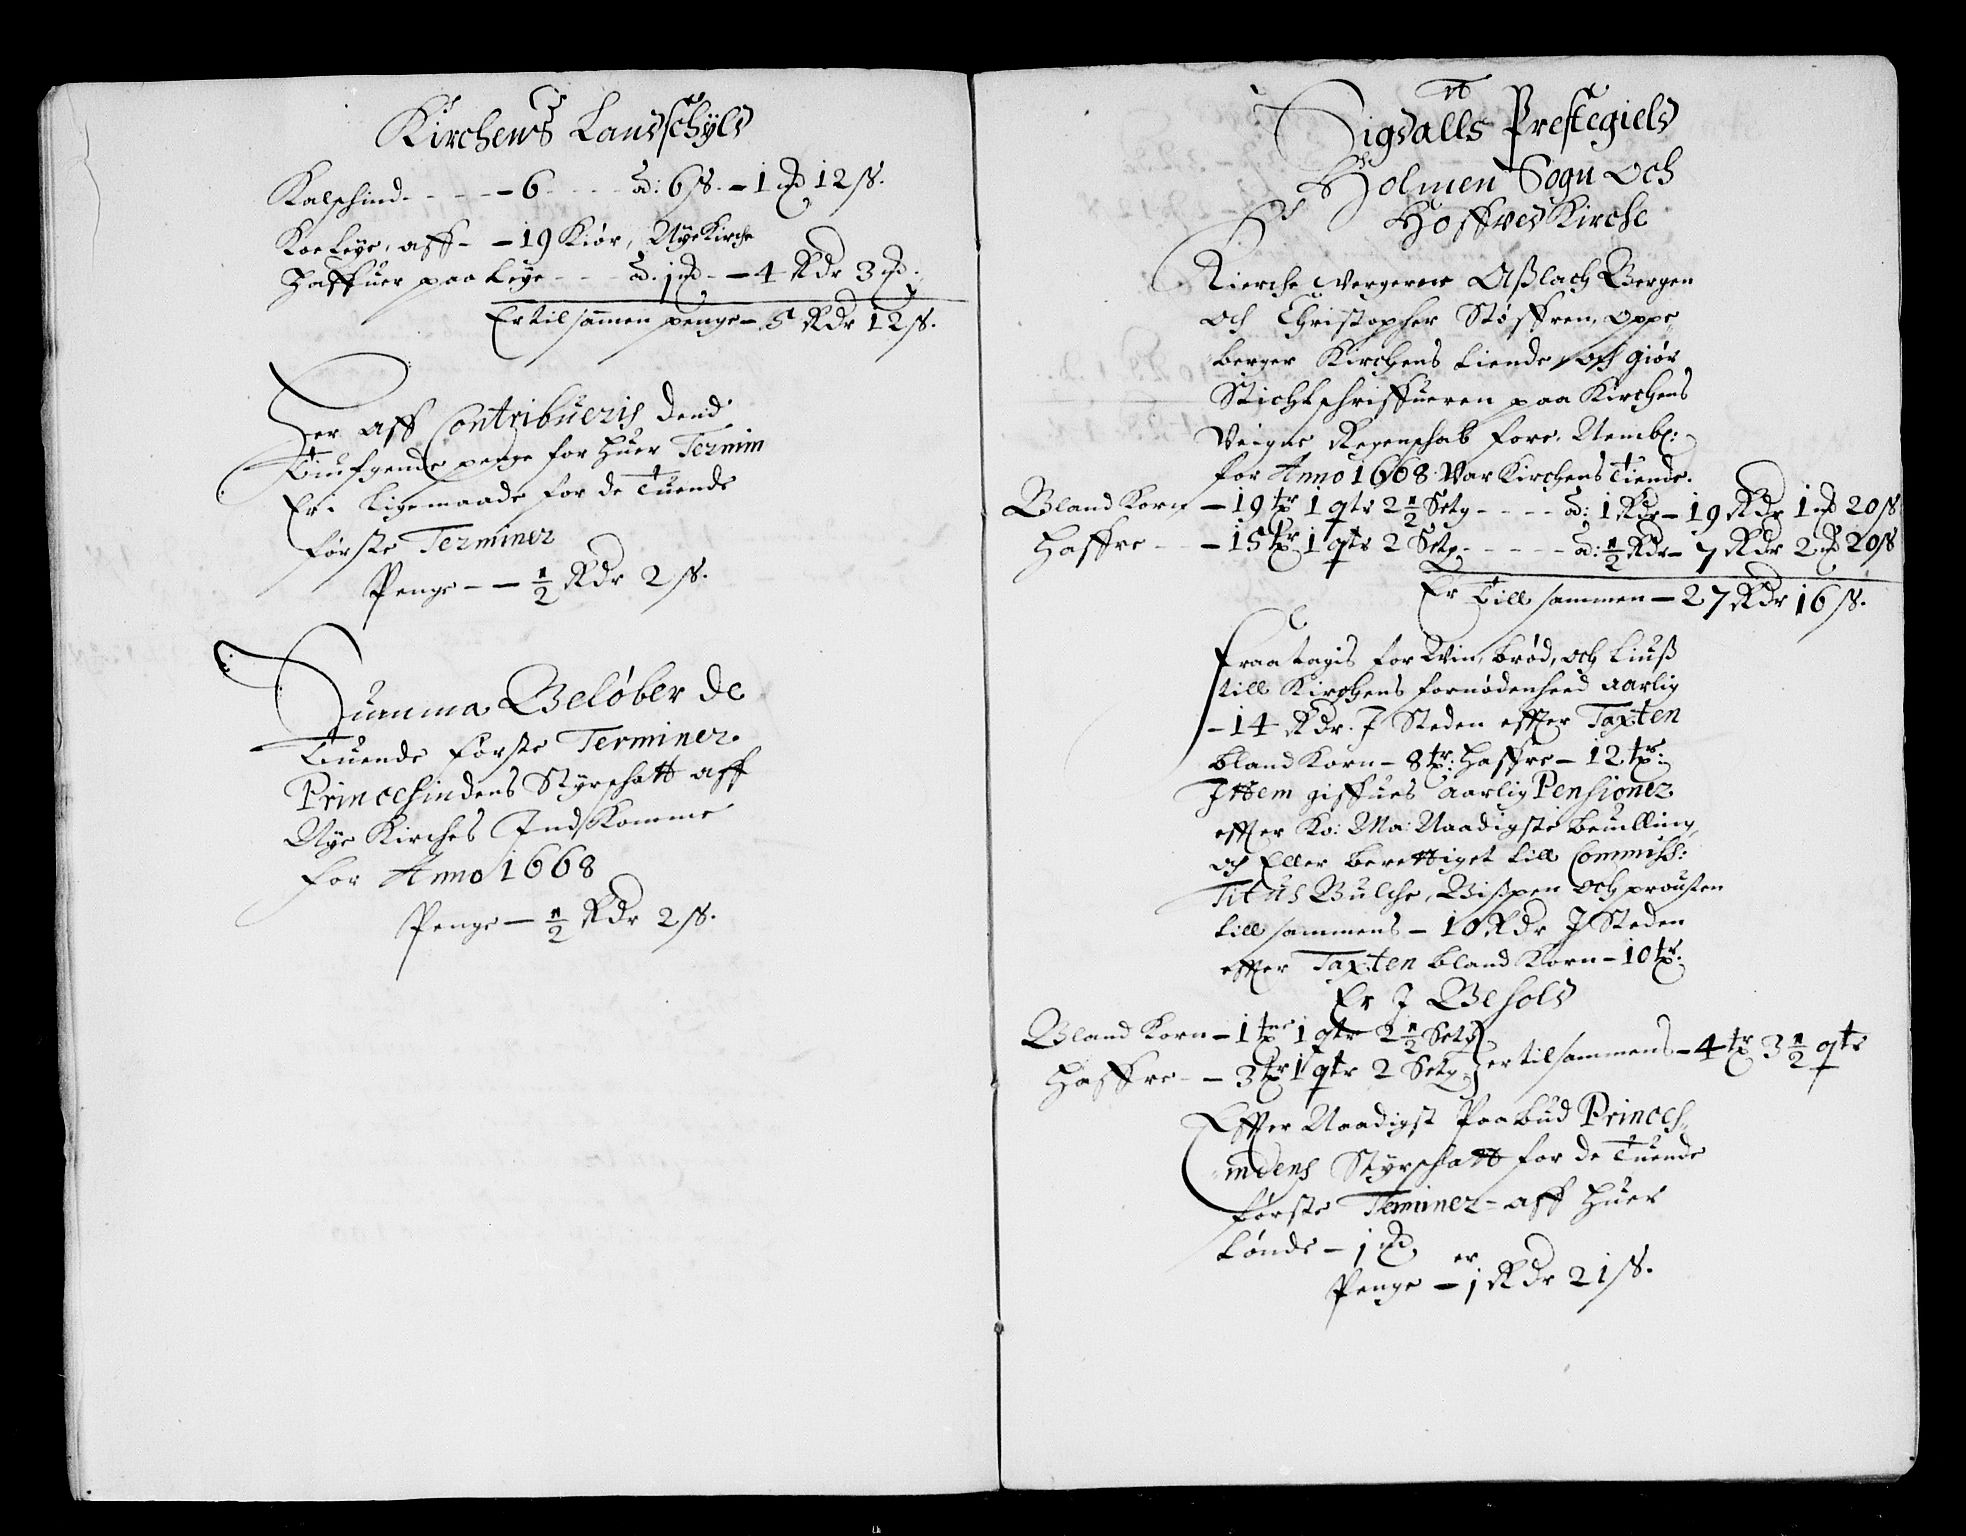 Kirchens Landschyld
Kalfschind - - - - 6 - - - ad: 6 ß. - 1 md 12 ß.
Koe Leye, aff - - 19 Kiør, Nye Kirche
Haffuer paa Leye - - - ad. 1 md - - 4 Rdr 3 md.
Er tilsammen penge - 5 Rdr 12 ß.
Her aff Contribueris dend
Tiufgende penge for huer Termin
Er. Ligemaade for de Tuende
første Terminer
Penge - - ½ Rdr 2 ß.
Summa Beløber de
Tuende første Terminer.
Princessindens Styrschatt aff
Nye Kirches Indkomme
for Anno 1668
Penge - ½ Rdr 2 ß.
Sigdalls Prestegield
Holmen Sogn och
Hoffved Kirche
Kierche Wergerne Aßlach Bergen
och Christopher Støffren, oppe,
berger Kirchens tiende, och giør
Stichtschriffueren paa Kirchens
Veigne Regenschab fore. Nembl:
for Anno 1668 Var Kirchens Tiende.
Bland Korn - 19 tr 1 qtr 2½ Setg - - - - ad: 1 Rdr - 19 Rdr 1 md 20 ß
Haffre - - 15 tr 1 qtr 2 Setg - - - - ad: ½ Rdr - 7 Rdr 2 md 20 ß
Er Till sammen - 27 Rdr 16 ß.
Fraatagis for Win, brød, och Liuß
till Kirchens fornødenheed aarlig
- 14 Rdr. J Steden effter Taxten
bland Korn - 8 tr: Haffre - 12 tr:
Jttem giffues aarlig Pensioner
effter Ko: Ma: Naadigste beuilling,
och Eller berettiget till Commiss:
Titus Bulche, Bißpen och prousten
till sammens - 10 Rdr J Steden
effter Taxten bland Korn - 10 tr:
Er J Behold
Bland Korn - 1 tne 1 qtr 2½ Setg
Haffre - - 3 tr 1 qtr 2 Setg er tilsammens - 4 tr 3½ qtr
Effter Naadigst Paabud Princes-
indens Styrschatt for de Tuende
første Terminer - aff huer
tønde - 1 md, er
Penge - 1 Rdr 21 ß.